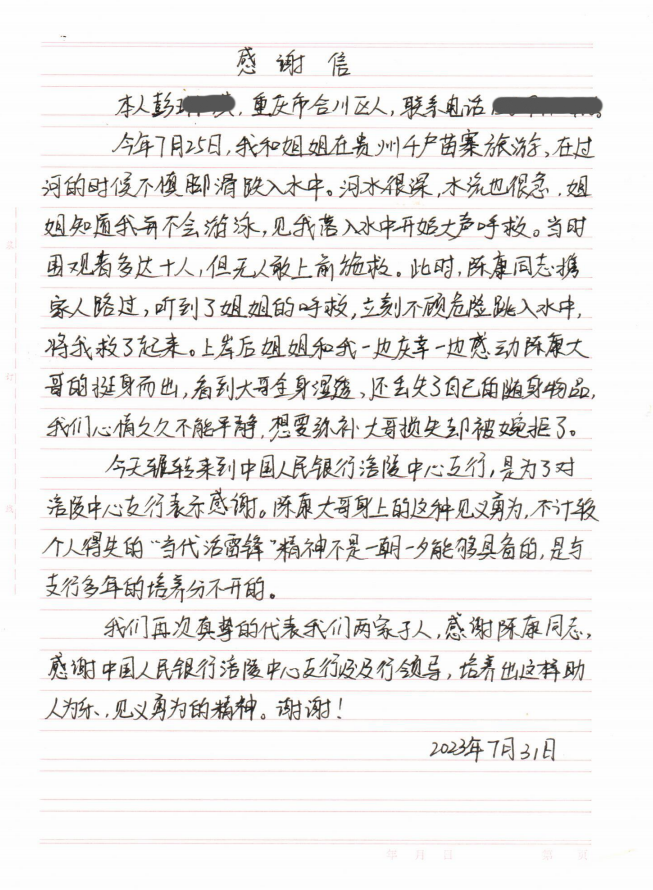 感谢信
本人彭，重庆市合川区人，联系电话。
今年7月25日，我和姐姐在贵州千户苗寨旅游，在过
河的时候不慎脚滑跌入水中。河水很深，水流也很急，姐
姐知道我并不会游泳，见我落入水中开始大声呼救。当时
围观者多达十人，但无人敢上前施救。此时，陈康同志携
家人路过，听到了姐姐的呼救，立刻不顾危险跳入水中，
将我救了起来。上岸后姐姐和我一边庆幸一边感动陈康大
哥的挺身而出，看到大哥全身湿透、还丢失了自己的随身物品，
我们心情久久不能平静，想要弥补大哥损失却被婉拒了。
今天辗转来到中国人民银行涪陵中心支行，是为了对
涪陵中心支行表示感谢。陈康大哥身上的这种见义勇为，不计较
个人得失的“当代活雷锋”精神不是一朝一夕能够具备的，是与
支行多年的培养分不开的。
我们再次真挚的代表我们两家子人，感谢陈康同志，
感谢中国人民银行涪陵中心支行及及行领导，培养出这样助
人为乐、见义勇为的精神。谢谢！
2023年7月31日